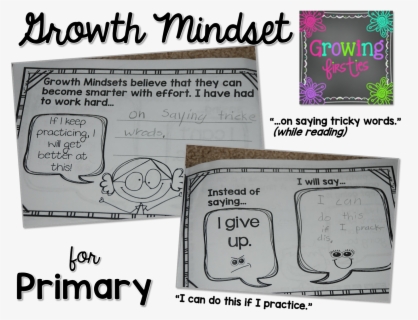 Growth Mindset
Growing
firsties
Growth Mindsets believe that they can
become smarter with effort. I have had
to work hard...
on saying tricke
wrods.
If I keep
practicing, I
will get
better at
this!
"...on saying tricky words."
(while reading)
Instead of
saying...
I give
up.
I will say...
I can
do this
if I practer
dis.
for
Primary
"I can do this if I practice."